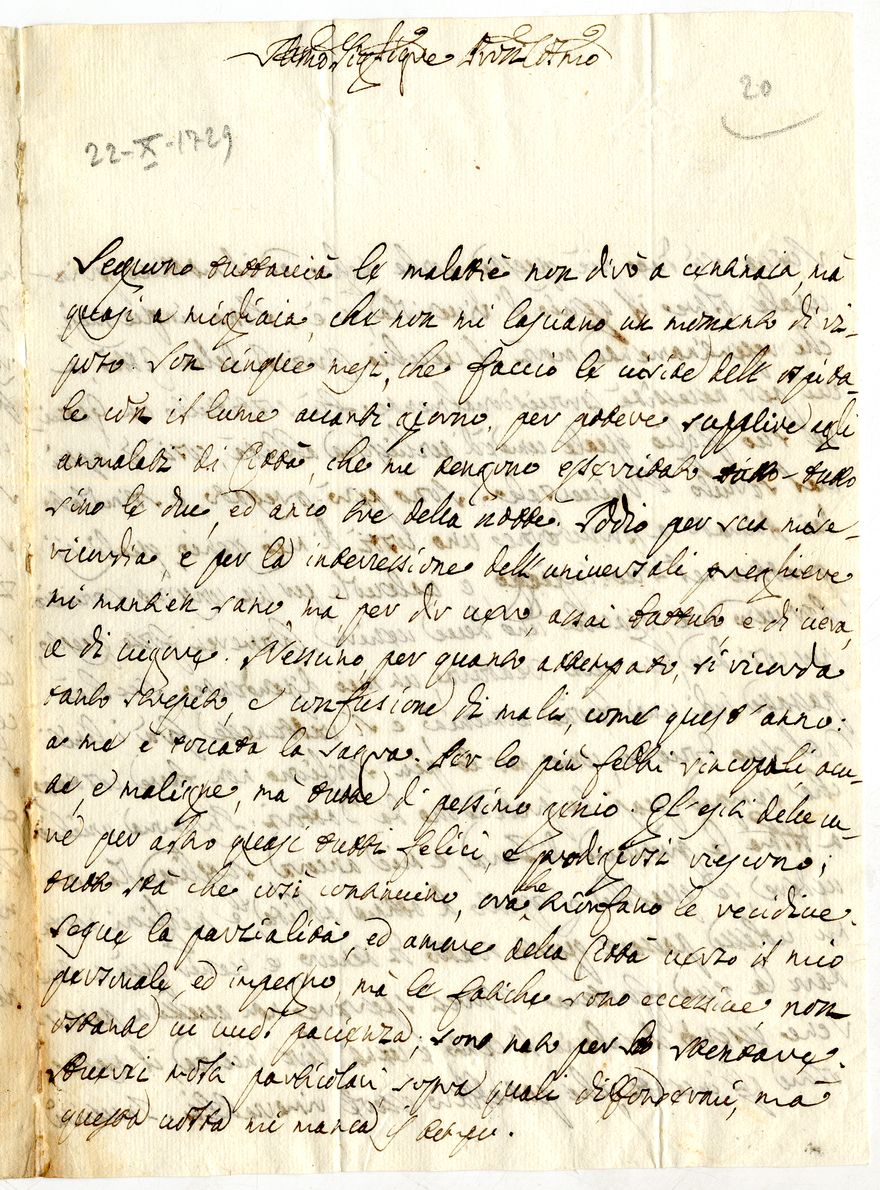 Sig.r Sig.re Pron Col.mo
20
22-X-1729
Sieguono tuttavia le malatie non dirò a centinaia, mà
quasi a migliaia, che non mi lasciano un momento di ri-
poso. Son cinque mesi, che faccio le visite dell'ospeda-
le con il lume avanti giorno, per potere supplire agli
ammalati di Città, che mi tengono essercitato tutto
sino le due, ed anco tre della notte. Iddio per sua mise-
ricordia, e per la intercessione dell'universali preghiere
mi mantien sano, mà, per dir vero, assai battuto, e di ciera,
e di vigore. Nessuno, per quanto attempato, si ricorda
tanto strepito, e confusione di mali, come quest'anno:
a me è toccata la sagra. Per lo più febbri sincopali, acu-
te, e maligne, mà tutte di pessimo genio. Gl'esiti delle cu-
re per altro quasi tutti felici, e prodigiosi riescono;
tutto stà che così continuino, ora che trionfano le recidive.
Segue la parzialità, ed amore della Città verso il mio
personale, ed impegno, mà le fatiche sono eccessive, non
ostante vi vuol pacienza; sono nato per stentare.
Averei molti particolari sopra quali diffondermi, mà
questa volta mi manca il tempo.